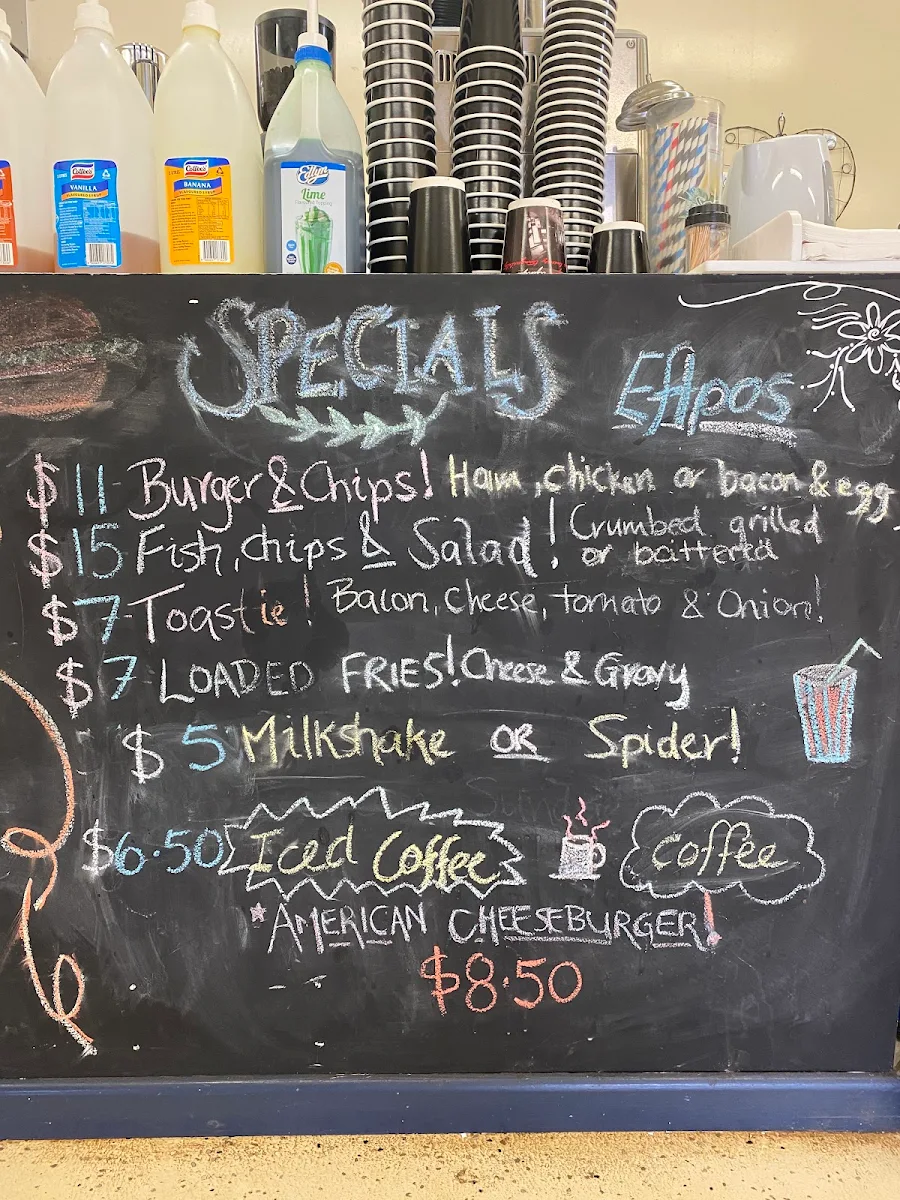 Cottee's
VANILLA
Cottee's
BANANA
Edlyn
Lime
SPECIALS
Eftpos
$11 Burger & Chips! Ham, chicken or bacon & egg
$15 Fish, chips & Salad! Crumbed, grilled
or battered
$7 Toastie! Bacon, cheese, tomato & Onion!
$7 LOADED FRIES! Cheese & Gravy
$5 Milkshake OR Spider!
$6.50 Iced Coffee
Coffee
*AMERICAN CHEESEBURGER!
$8.50